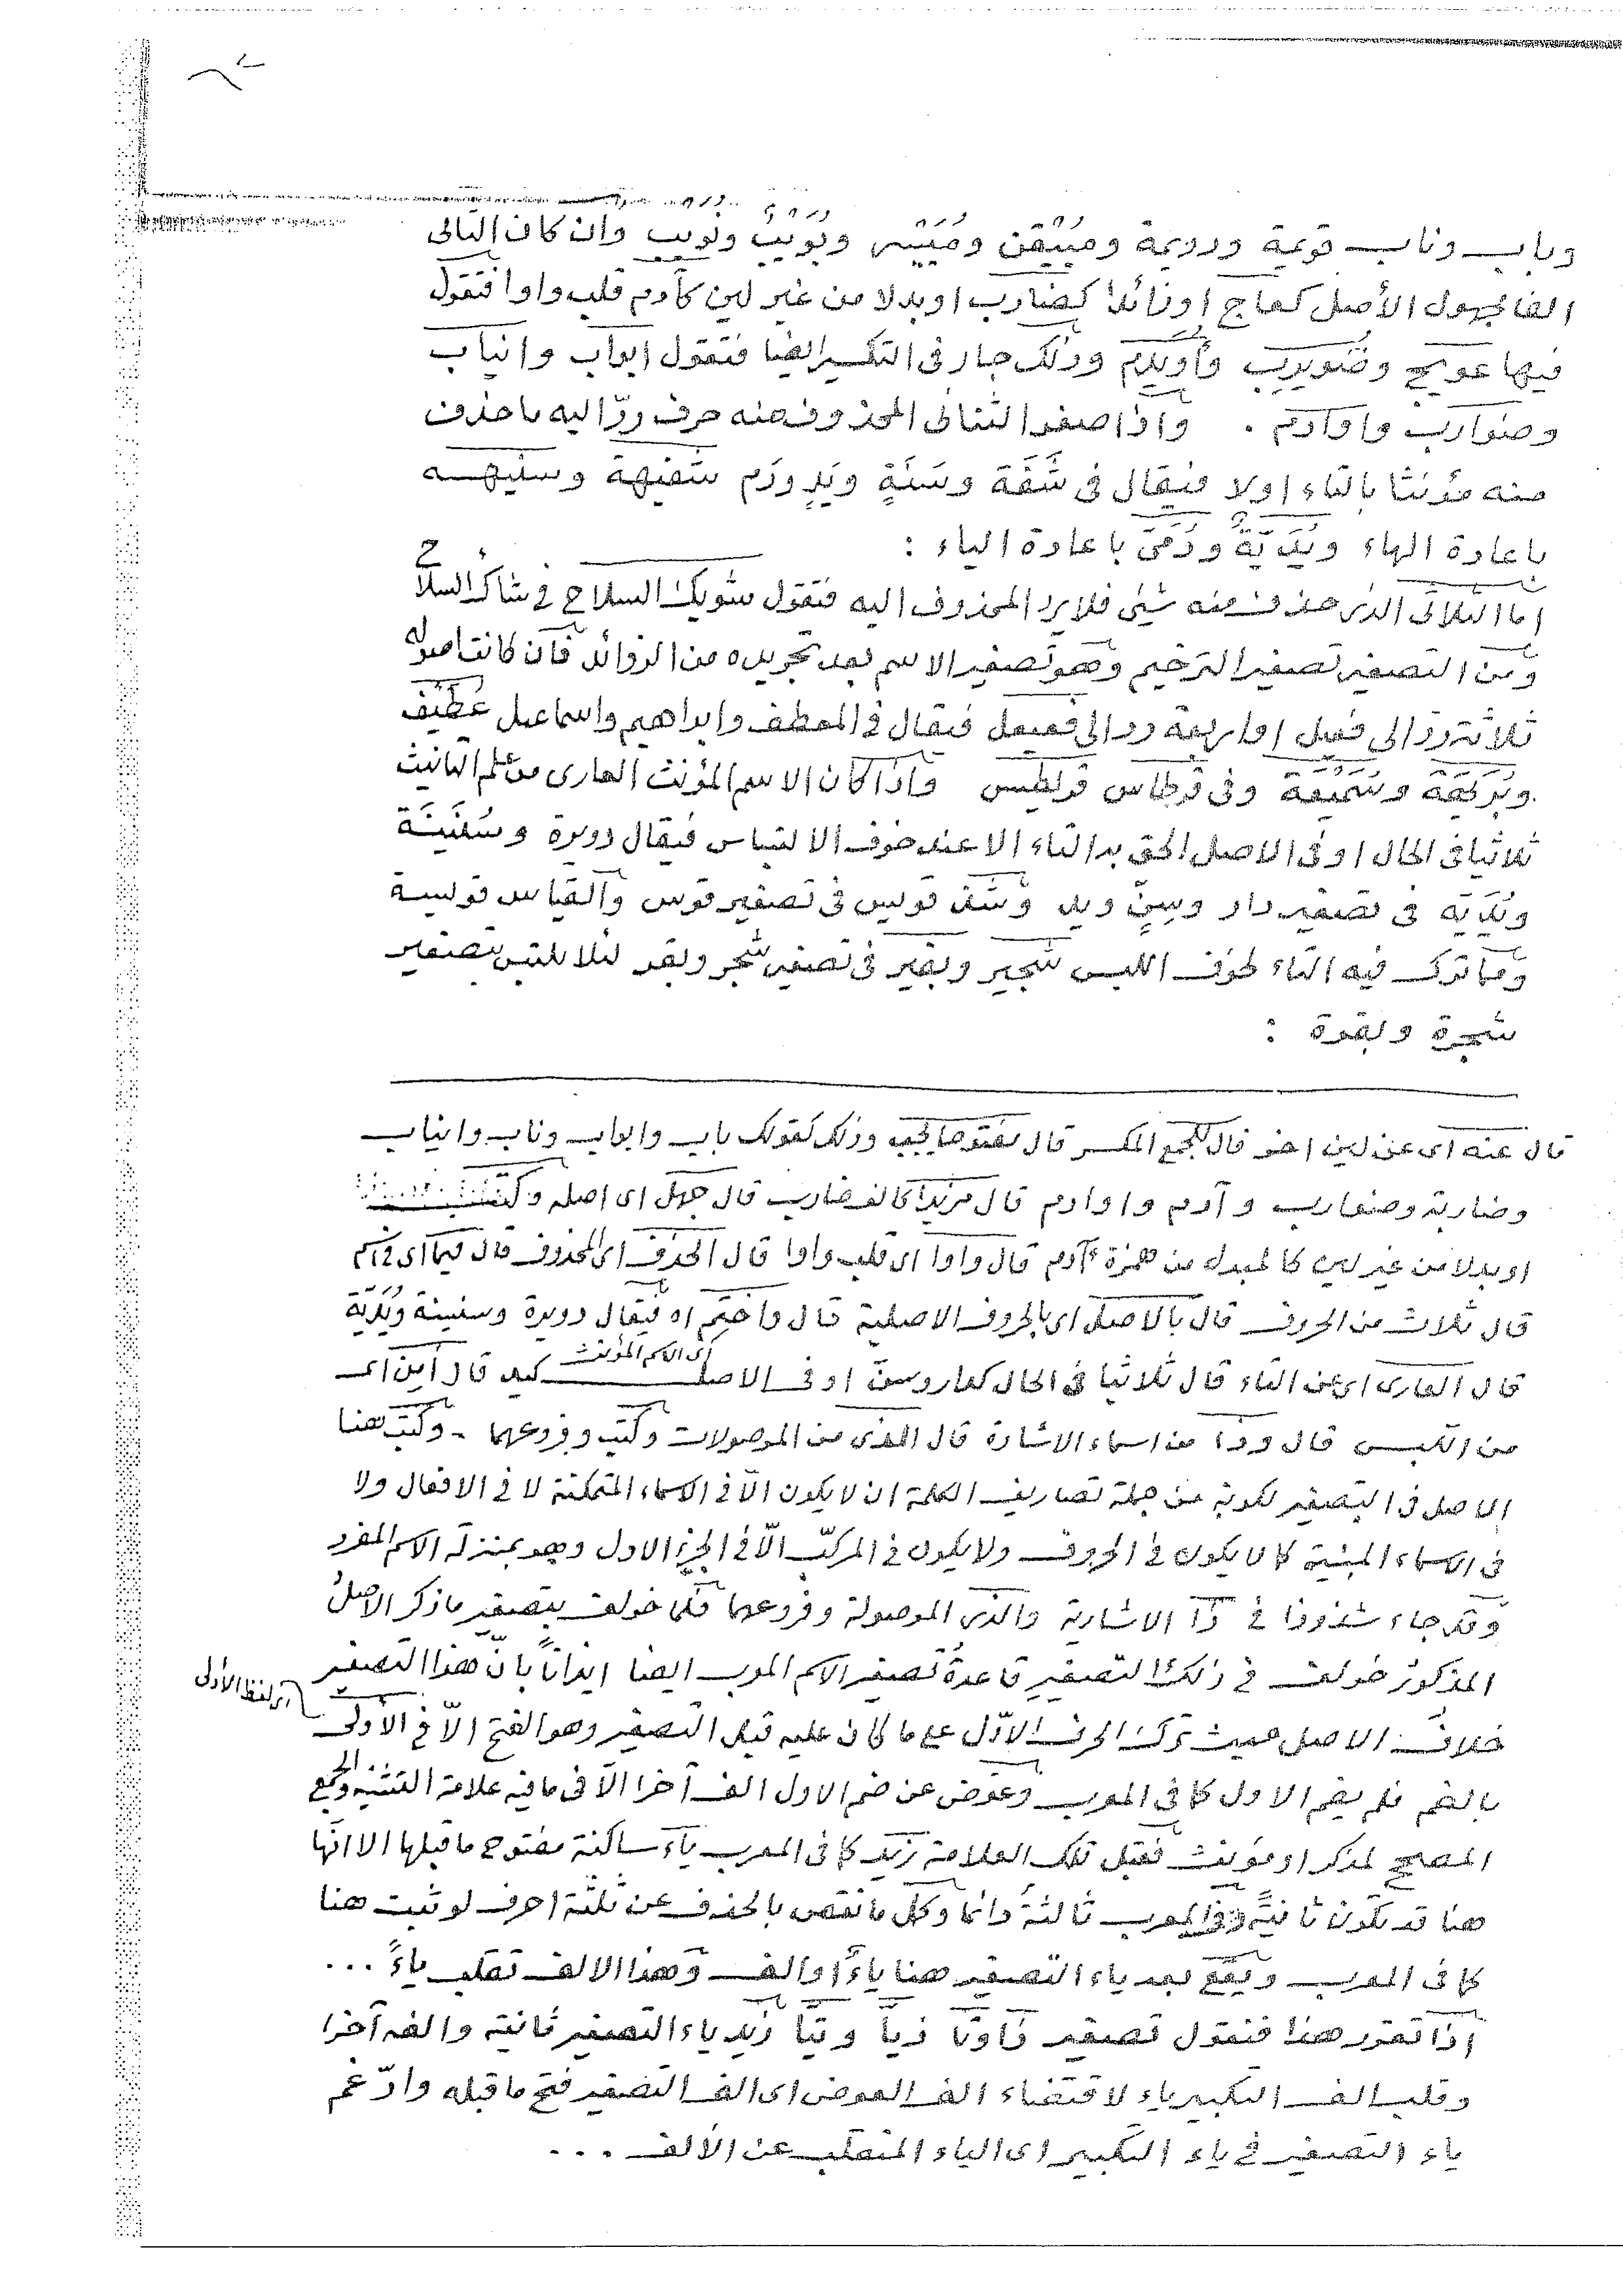 وباب وناب قويمة ودويمة ومُيَيْقن ومُيَيْسر وبُوَيْبٌ ونُوَيْب وان كان الثانى
الفا مجهول الأصل كعاج او زائدا كضارب او بدلا من غير لين كآدم قلب واوا فتقول
فيها عويج وضُوَيرب وأُوَيْدِم وذلك جار فى التكسير ايضا فتقول ابواب وانياب
وضوارب واوادم . واذا صغر الثنائى المحذوف منه حرف ردّ اليه ما حذف
منه مؤنثا بالتاء اولا فيقال فى شَفَة وسَنَةٍ ويَدٍ ودَم شفيهة وسنيهه
باعادة الهاء ويُدَيّةٌ ودُمَىّ باعادة الياء :
اما الثلاثى الذى حذف منه شىء فلا يرد المحذوف اليه فتقول شويك السلاح فى شاك السلاح
ومن التصغير تصغير الترخيم وهو تصغير الاسم بعد تجريده من الزوائد فان كانت اصوله
ثلاثة رد الى فعيل او اربعة رد الى فعيعل فيقال فى المعطف وابراهيم واسماعيل عُطَيْف
وبُرَيْهة وسُمَيْعة وفى قرطاس قريطيس واذا كان الاسم المؤنث العارى من علم التأنيث
ثلاثيا فى الحال او فى الاصل الحق به التاء الا عند خوف الالتباس فيقال دويرة وسُنَيْنَة
ويُدَيّة فى تصغير دار وسِنٍّ ويد وشذ قويس فى تصغير قوس والقياس قويسة
ومما ترك فيه التاء لخوف اللبس شجير وبقير فى تصغير شجر وبقر لئلا يلتبس بتصغير
شجرة وبقرة :
قال عنه اى عن لين اخر قال للجمع المكسر قال بفتوحا يجب وذلك كقولك باب وابواب وناب وانياب
وضاربة وضوارب وآدم واوادم قال مزيدا كالف ضارب قال جهل اى اصله وكتب
او بدلا من غير لين كالمبدل من همزة آدم قال واوا اى قلب واوا قال الحذف اى المحذوف قال فيما اى فى اسم
قال ثلاث من الحروف قال بالاصل اى بالحروف الاصلية قال واختم اه فيقال دويرة وسنينة ويُدَيّة
قال العارى اى عن التاء قال ثلاثيا فى الحال كدار وسنّ او فى الاصل اى الاسم المؤنث كيد قال أمن اى
من اللبس قال وذا من اسماء الاشارة قال الذى من الموصولات وكتب وفروعهما - وكتب هنا
الاصل فى التصغير لكونه من جملة تصاريف الكلمة ان لا يكون الّا فى الاسماء المتمكنة لا فى الافعال ولا
فى الاسماء المبنية كما لا يكون فى الحروف ولا يكون فى المركّب الّا فى الجزء الاول وهو بمنزلة الاسم المفرد
وقد جاء شذوذا فى ذا الاشارية والذى الموصولة وفروعهما فكما خولف بتصغير ما ذكر الاصلُ
المذكورُ خولف فى ذلك التصغيرِ قاعدةُ تصغير الاسم المعرب ايضا ايذاناً بانّ هذا التصغير
خلاف الاصل حيث ترك الحرف الاوّل على ما كان عليه قبل التصغير وهو الفتح الّا فى الأولى
اى لفظ الأولى
بالضم فلم يضم الاول كما فى المعرب وعوّض عن ضم الاول الف آخرا الّا فى ما فيه علامة التثنية والجمع
المصحح لمذكر او مؤنث فقبل تلك العلامة زيد كما فى المعرب ياء ساكنة مفتوح ما قبلها الا انّها
هنا قد تكون ثانيةً وفى المعرب ثالثةً دائما وكل ما نقص بالحذف عن ثلثة احرف لو ثبت هنا
كما فى المعرب ويقع بعد ياء التصغير هنا ياءٌ او الف وهذا الالف تقلب ياءً ...
اذا تقرر هذا فتقول تصغير ذا وتا ذيّا وتيّا زيد ياء التصغير ثانية والف آخرا
وقلب الف التكبير ياء لاقتضاء الف العوض اى الف التصغير فتح ما قبله وادّغم
ياء التصغير فى ياء التكبير اى الياء المنقلب عن الألف ...